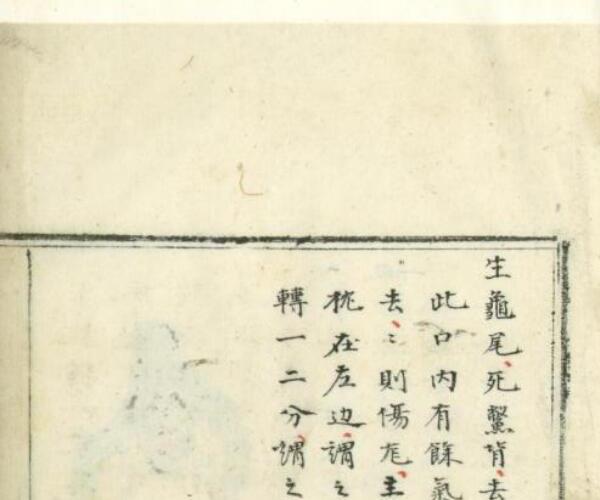 生龜尾、死鱉背、去
此口内有餘氣
去、〻則傷尨、主
枕在左边、謂之
轉一二分、謂之